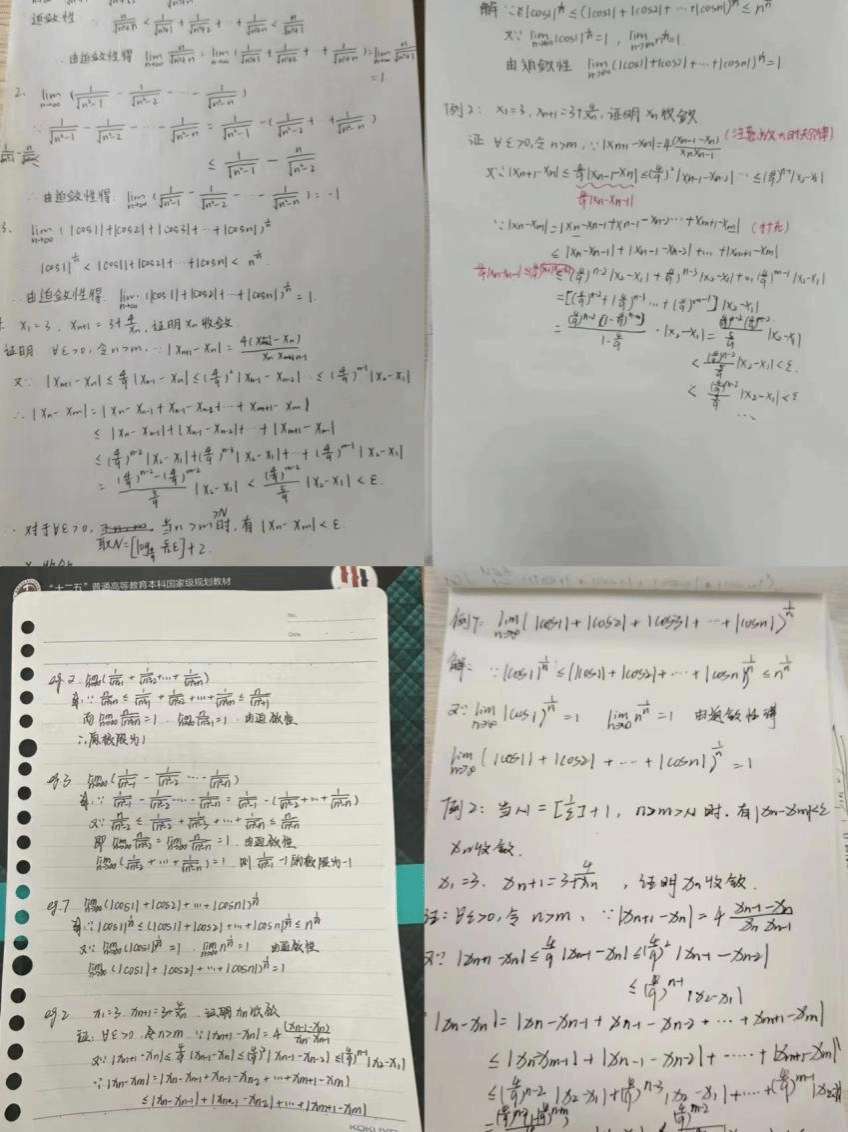 迫敛性 n/√(n²+n) < 1/√(n²+1) + 1/√(n²+2) + ⋯ + 1/√(n²+n) <
∴由迫敛性得 lim n→∞ = lim n→∞ (1/√(n²+1) + 1/√(n²+2) + ⋯ + 1/√(n²+n)) = lim n→∞
= 1
2. lim n→∞ (1/√(n²-1) - 1/√(n²-2) - ⋯ - 1/√(n²-n))
∵ 1/√(n²-1) - 1/√(n²-2) - ⋯ - 1/√(n²-n) = 1/√(n²-1) - (1/√(n²-2) + ⋯ + 1/√(n²-n))
≤ 1/√(n²-1) - n/√(n²-2)
∴由迫敛性得: lim n→∞ (1/√(n²-1) - 1/√(n²-2) - ⋯ - 1/√(n²-n)) = -1
3. lim n→∞ (|cos1|+|cos2|+|cos3|+⋯+|cosn|)^(1/n)
|cos1|^(1/n) < |cos1|+|cos2|+⋯+|cosn| < n^(1/n)
∴由迫敛性得: lim n→∞ (|cos1|+|cos2|+⋯+|cosn|)^(1/n) = 1.
x₁=3, xₙ₊₁=3+4/xₙ, 证明 xₙ 收敛.
证明: ∀ε>0, 令n>m, ∵|xₙ₊₁-xₙ| =
又∵ |xₙ₊₁-xₙ| ≤ 4/9|xₙ₋₁-xₙ| ≤ (4/9)²|xₙ₋₁-xₙ₋₂| ⋯ ≤ (4/9)ⁿ⁻¹|x₂-x₁|
∴ |xₙ-xₘ| = |xₙ-xₙ₋₁+xₙ₋₁-xₙ₋₂+⋯+xₘ₊₁-xₘ|
≤ |xₙ-xₙ₋₁|+|xₙ₋₁-xₙ₋₂|+⋯+|xₘ₊₁-xₘ|
≤ (4/9)ⁿ⁻²|x₂-x₁|+(4/9)ⁿ⁻³|x₂-x₁|+⋯+(4/9)ᵐ⁻¹|x₂-x₁|
= |x₂-x₁| < |x₂-x₁| < ε.
对于∀ε>0, 当n>m>N时, 有|xₙ-xₘ|<ε.
取N= +2
解: ∵|cos1|^(1/n) ≤ (|cos1|+|cos2|+⋯+|cosn|)^(1/n) ≤ n^(1/n)
又∵ lim n→∞ |cos1|^(1/n) = 1, lim n→∞ n^(1/n) = 1.
由迫敛性 lim n→∞ (|cos1|+|cos2|+⋯+|cosn|)^(1/n) = 1
例2: x₁=3, xₙ₊₁=3+4/xₙ, 证明xₙ收敛
证 ∀ε>0, 令n>m, ∵|xₙ₊₁-xₙ| = 4(xₙ₋₁-xₙ)/(xₙxₙ₋₁)
又∵|xₙ₊₁-xₙ| ≤ 4/9|xₙ₋₁-xₙ| ≤ (4/9)²|xₙ₋₁-xₙ₋₂| ⋯ ≤ (4/9)ⁿ⁻¹|x₂-x₁|
4/9|xₙ-xₙ₋₁|
∵|xₙ-xₘ| = |xₙ-xₙ₋₁+xₙ₋₁-xₙ₋₂⋯+xₘ₊₁-xₘ|
≤ |xₙ-xₙ₋₁|+|xₙ₋₁-xₙ₋₂|+⋯+|xₘ₊₁-xₘ|
≤ (4/9)ⁿ⁻²|x₂-x₁|+(4/9)ⁿ⁻³|x₂-x₁|+⋯(4/9)ᵐ⁻¹|x₂-x₁|
=[(4/9)ⁿ⁻²+(4/9)ⁿ⁻³⋯+(4/9)ᵐ⁻¹]|x₂-x₁|
= ·|x₂-x₁| = |x₂-x₁|
< |x₂-x₁| < ε.
< |x₂-x₁| < ε
⋯
"十二五"普通高等教育本科国家级规划教材
No.
Date
eg.2. lim n→∞ (1/√(n²+1) + 1/√(n²+2) +⋯+ 1/√(n²+n))
解: ∵ n/√(n²+n) ≤ 1/√(n²+1) + 1/√(n²+2) +⋯+ 1/√(n²+n) ≤ n/√(n²+1)
而 lim n→∞ n/√(n²+n) = 1. lim n→∞ n/√(n²+1) = 1. 由迫敛性
∴原极限为1
eg.3 lim n→∞ (1/√(n²-1) - 1/√(n²-2) ⋯ - 1/√(n²-n))
解: ∵ 1/√(n²-1) - 1/√(n²-2) ⋯ - 1/√(n²-n) = 1/√(n²-1) - (1/√(n²-2) +⋯+ 1/√(n²-n))
又∵ n/√(n²-2) ≤ 1/√(n²-2) + 1/√(n²-3) +⋯+ 1/√(n²-n) ≤ n/√(n²-n)
即 lim n→∞ n/√(n²-2) = lim n→∞ n/√(n²-n) = 1 由迫敛性
lim n→∞ (1/√(n²-2) +⋯+ 1/√(n²-n)) = 1 则 的极限为-1
eg.7 lim n→∞ (|cos1|+|cos2|+⋯+|cosn|)^(1/n)
解: ∵|cos1|^(1/n) ≤ (|cos1|+|cos2|+⋯+|cosn|)^(1/n) ≤ n^(1/n)
又∵ lim n→∞ |cos1|^(1/n) = 1 lim n→∞ n^(1/n) = 1 由迫敛性
lim n→∞ (|cos1|+|cos2|+⋯+|cosn|)^(1/n) = 1
eg.2 x₁=3. xₙ₊₁=3+4/xₙ. 证明xₙ收敛
证: ∀ε>0, 令n>m. ∵|xₙ₊₁-xₙ| = 4 (xₙ₋₁-xₙ)/(xₙ·xₙ₋₁)
又∵|xₙ₊₁-xₙ| ≤ 4/9|xₙ₋₁-xₙ| ≤ (4/9)²|xₙ₋₁-xₙ₋₂| ≤ (4/9)ⁿ⁻¹|x₂-x₁|
∵|xₙ-xₘ| = |xₙ-xₙ₋₁+xₙ₋₁-xₙ₋₂+⋯+xₘ₊₁-xₘ|
≤|xₙ-xₙ₋₁|+|xₙ₋₁-xₙ₋₂|+⋯+|xₘ₊₁-xₘ|
KOKUYO
例7: lim n→∞ (|cos1|+|cos2|+|cos3|+⋯+|cosn|)^(1/n)
解: ∵|cos1|^(1/n) ≤ (|cos1|+|cos2|+⋯+|cosn|)^(1/n) ≤ n^(1/n)
又∵ lim n→∞ |cos1|^(1/n) = 1 lim n→∞ n^(1/n) = 1 由迫敛性得
lim n→∞ (|cos1|+|cos2|+⋯+|cosn|)^(1/n) = 1
例2: 当N=[1/ε]+1, n>m>N时, 有|xₙ-xₘ|<ε
xₙ收敛.
x₁=3. xₙ₊₁=3+4/xₙ, 证明xₙ收敛.
证: ∀ε>0, 令n>m, ∵|xₙ₊₁-xₙ| = 4 (xₙ₋₁-xₙ)/(xₙ xₙ₋₁)
又∵ |xₙ₊₁-xₙ| ≤ 4/9|xₙ₋₁-xₙ| ≤ (4/9)²|xₙ₋₁-xₙ₋₂|
≤ (4/9)ⁿ⁻¹|x₂-x₁|
|xₙ-xₘ| = |xₙ-xₙ₋₁+xₙ₋₁-xₙ₋₂+⋯+xₘ₊₁-xₘ|
≤ |xₙ-xₙ₋₁|+|xₙ₋₁-xₙ₋₂|+⋯⋯+|xₘ₊₁-xₘ|
≤ (4/9)ⁿ⁻²|x₂-x₁|+(4/9)ⁿ⁻³|x₂-x₁|+⋯⋯+(4/9)ᵐ⁻¹|x₂-x₁|